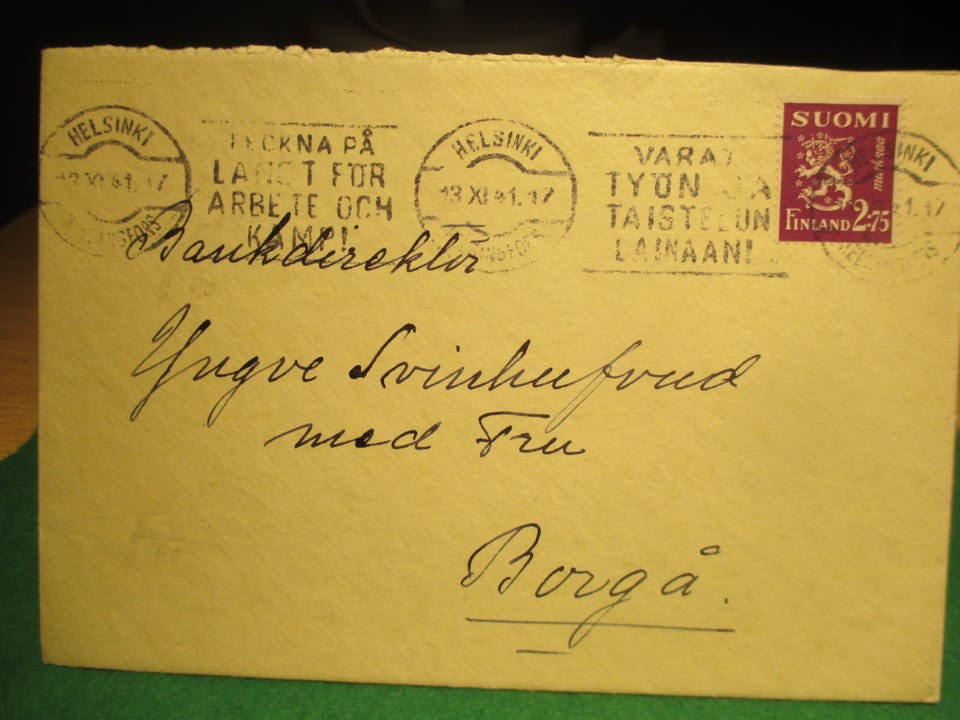 HELSINKI
13 XI 41. 17
HELSINGFORS
TECKNA PÅ
LANET FÖR
ARBETE OCH
KAMP!
HELSINKI
13 XI 41. 17
HELSINGFORS
VARAT
TYÖN JA
TAISTELUN
LAINAAN!
SUOMI
markkaa
FINLAND 2.75
Bankdirektör
Yngve Svinhufvud
med Fru
Borgå.